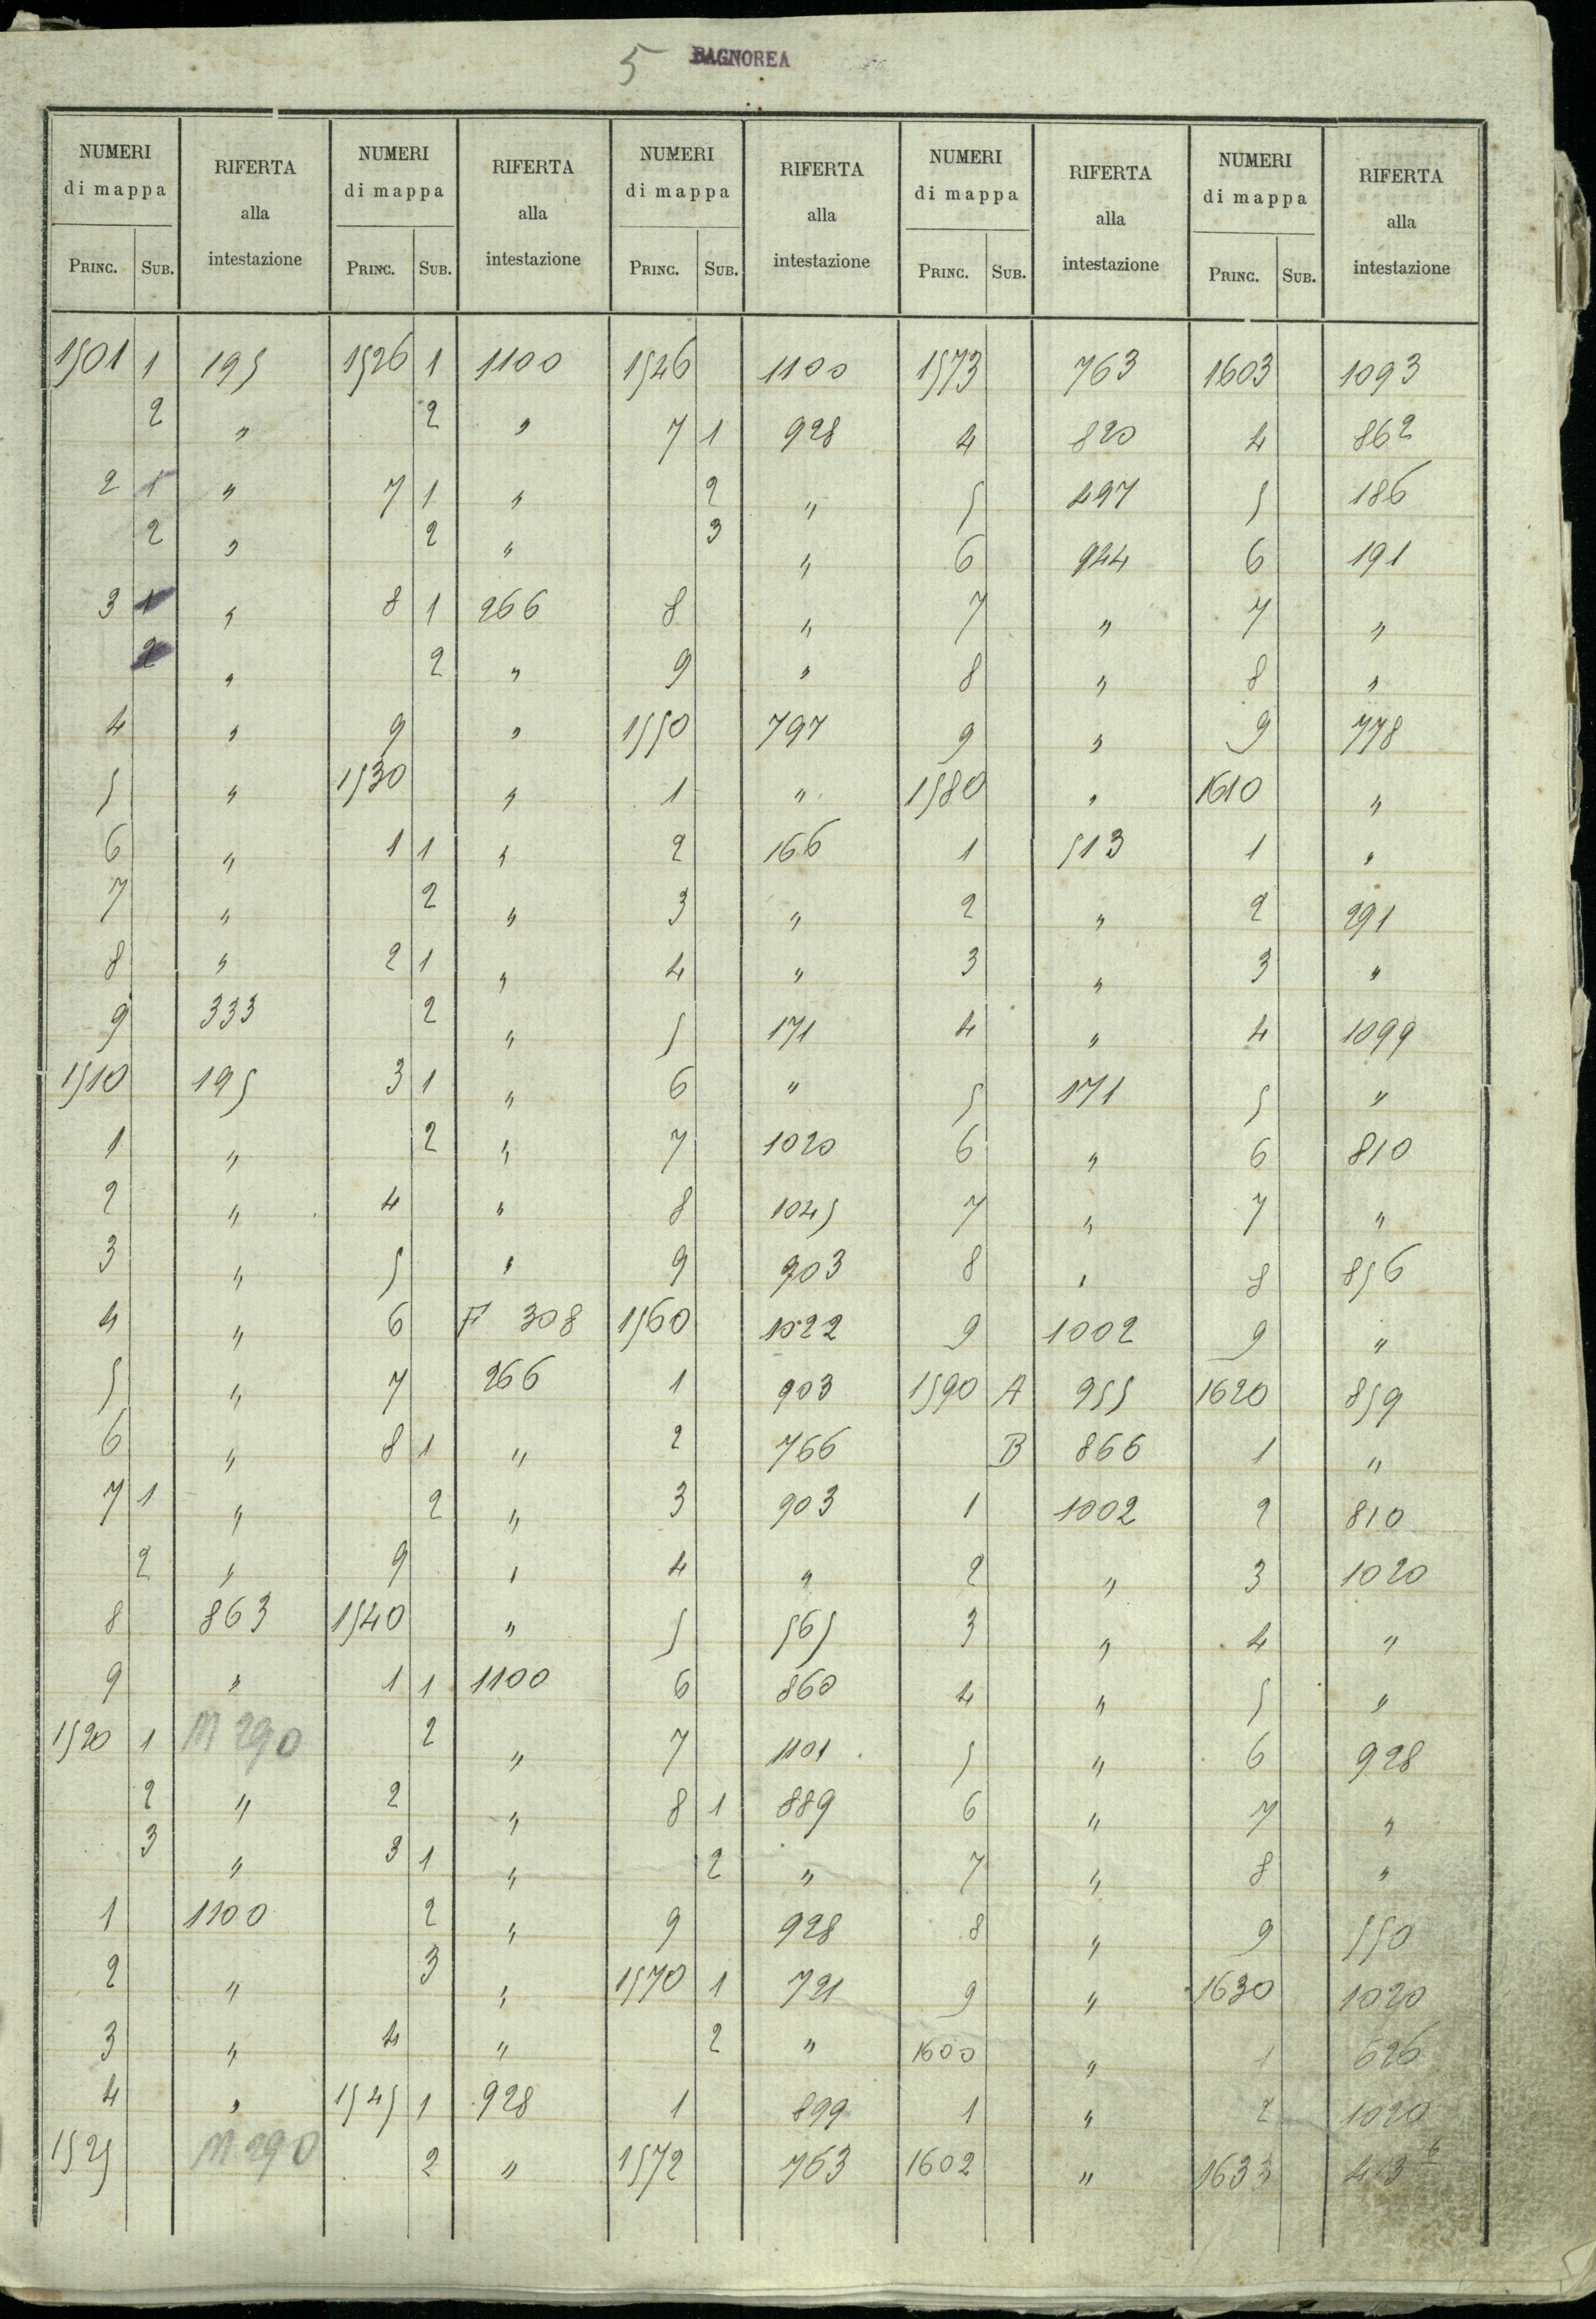 5 BAGNOREA
NUMERI di mappa RIFERTA alla intestazione NUMERI di mappa RIFERTA alla intestazione NUMERI di mappa RIFERTA alla intestazione NUMERI di mappa RIFERTA alla intestazione NUMERI di mappa RIFERTA alla intestazione
PRINC. SUB. PRINC. SUB. PRINC. SUB. PRINC. SUB. PRINC. SUB.
1501 1 195 1526 1 1100 1546 1100 1573 763 1603 1093
2 " 2 " 7 1 928 4 820 4 862
2 1 " 7 1 " 2 " 5 497 5 186
2 " 2 " 3 " 6 944 6 191
3 1 " 8 1 266 8 " 7 " 7 "
2 " 2 " 9 " 8 " 8 "
4 " 9 " 1550 797 9 " 9 778
5 " 1530 " 1 " 1580 " 1610 "
6 " 1 1 " 2 166 1 513 1 "
7 " 2 " 3 " 2 " 2 291
8 " 2 1 " 4 " 3 " 3 "
9 333 2 " 5 171 4 " 4 1099
1510 195 3 1 " 6 " 5 171 5 "
1 " 2 " 7 1020 6 " 6 810
2 " 4 " 8 1045 7 " 7 "
3 " 5 " 9 903 8 " 8 856
4 " 6 F 308 1560 1022 9 1002 9 "
5 " 7 266 1 903 1590 A 955 1620 859
6 " 8 1 " 2 766 B 866 1 "
7 1 " 2 " 3 903 1 1002 2 810
2 " 9 " 4 " 2 " 3 1020
8 863 1540 " 5 565 3 " 4 "
9 " 1 1 1100 6 860 4 " 5 "
1520 1 M 290 2 " 7 1101 5 " 6 928
2 " 2 " 8 1 889 6 " 7 "
3 " 3 1 " 2 " 7 " 8 "
1 1100 2 " 9 928 8 " 9 550
2 " 3 " 1570 1 721 9 " 1630 1020
3 " 4 " 2 " 1600 " 1 626
4 " 1545 1 928 1 899 1 " 2 1020
1525 M 290 2 " 1572 763 1602 " 1633